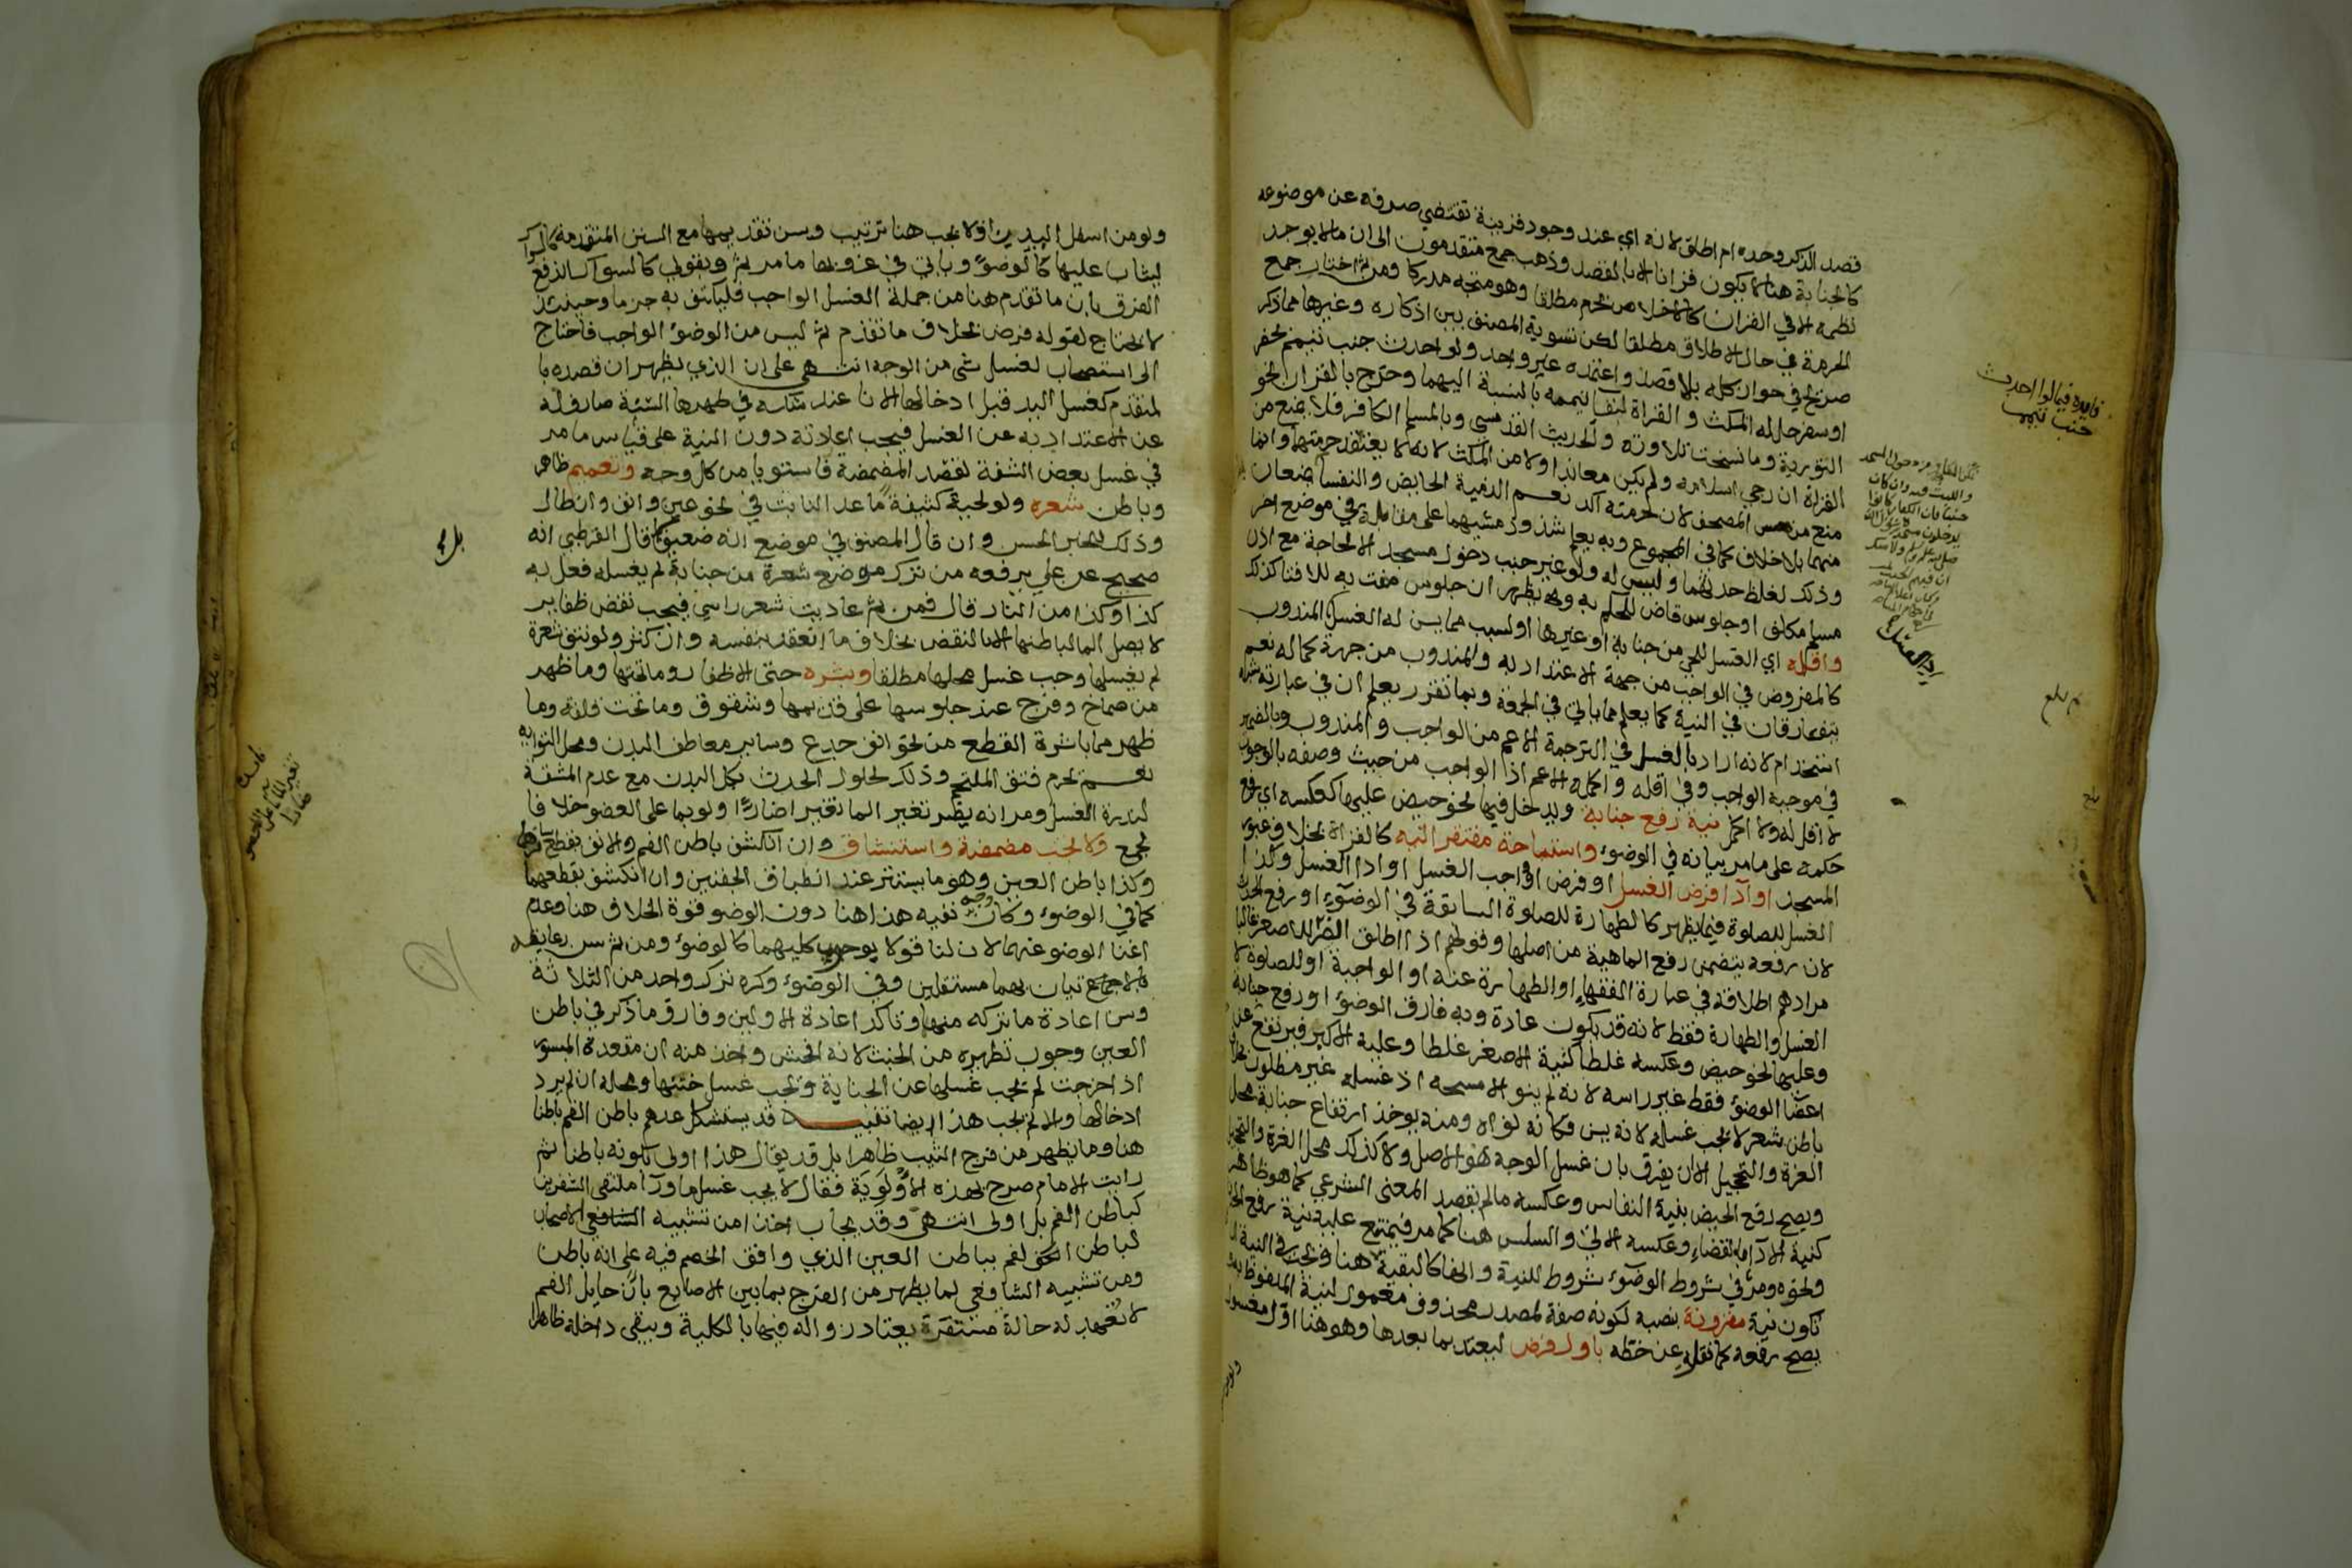 قصد الذكر وحده ام اطلق لانه اي عند وجود قرينة تقتضي صرفه عن موضوعه
كالجنابة هنا لا يكون قرانا الا بالقصد وذهب جمع متقدمون الى ان ما لا يوجد
نظمه الا في القران كالاخلاص يحرم مطلقا وهو متجه مدركا ومن ثم اختار جمع
الحرمة في حال الاطلاق مطلقا لكن تسوية المصنف بين اذكاره وغيرها مما ذكر
صريح في جواز كله بلا قصد واعتمده غير واحد ولو احدث جنب تيمم لحضر
او سفر حل له المكث والقراة لبقا تيممه بالنسبة اليهما وخرج بالقران نحو
التوردية وما نسخت تلاوته والحديث القدسي وبالمسلم الكافر فلا يمنع من
القراة ان رجي اسلامه ولم يكن معاندا ولا من المكث لانه لا يعتقد حرمتها وانما
منع من مس المصحف لان حرمته آكد نعم الذمية الحايض والنفسا يمنعان
منهما بلا خلاف كما في المجموع وبه يعلم شذوذ مشيهما على مقابله في موضع اخر
وذلك لغلظ حدثهما وليس له ولو غير جنب دخول مسجد الا لحاجة مع اذن
مسلم مكلف او جلوس قاض للحكم به و يظهر ان جلوس مفت به للافتا كذلك
واقله اي الغسل للحي من جنابة او غيرها او لسبب مما يسن له الغسل المندوب
كالمفروض في الواجب من جهة الاعتداد به والمندوب من جهة كماله نعم
يتفارقان في النية كما يعلم مما ياتي في الجمعة وبما تقرر يعلم ان في عبارته شبه
استخدام لانه اراد بالغسل في الترجمة الاعم من الواجب والمندوب وبالضمير
في موجبه الواجب وفي اقله واكمله الاعم اذ الواجب من حيث وصفه بالوجوب
لا اقل له ولا اكمل نية رفع جنابة ويدخل فيها نحو حيض عليها كعكسه اي رفع
حكمه على ما مر بيانه في الوضوء واستباحة مفتقر اليه كالقراة بخلاف عبور
المسجد او آدا فرض الغسل او فرض او واجب الغسل او ادا الغسل وكذا
الغسل للصلوة فيما يظهر كالطهارة للصلوة السابقة في الوضوء او رفع الحدث
لان رفعه يتضمن رفع الماهية من اصلها وقولهم اذا اطلق انصرف للاصغر غالبا
مرادهم اطلاقه في عبارة الفقهاء او الطهارة عنه او الواجبة او للصلوة لا
الغسل والطهارة فقط لانه قد يكون عادة وبه فارق الوضوء او رفع جنابة
وعليها نحو حيض وعكسه غلطا كنية الاصغر غلطا وعليه الاكبر فيرتفع عن
اعضا الوضوء فقط غير راسه لانه لم ينو الا مسحه اذ غسله غير مطلوب بخلاف
باطن شعر لا يجب غسله لانه يسن فكانه نواه ومنه يوخذ ارتفاع جنابة محل
الغرة والتحجيل الا ان يفرق بان غسل الوجه هو الاصل ولا كذلك محل الغرة والتحجيل
ويصح رفع الحيض بنية النفاس وعكسه ما لم يقصد المعنى الشرعي كما هو ظاهر
كنية الآدا بالقضاء وعكسه الاتي والسلس هنا كما مر فيمتنع عليه نية رفع الحدث
ونحوه ومر في شروط الوضوء شروط للنية والخفا كالبقية هنا ويجب في النية ان
تكون نية مقرونة بنصبه لكونه صفة لمصدر محذوف معمول لنية الملفوظ به
يصح رفعه كما نقل عن خطه باول فرض ليعتد بما بعدها وهو هنا اول مغسول
ولو من
فايدة فيما لو احدث
جنب تيمم
ولو من اسفل البدن اذ لا يجب هنا ترتيب ويسن تقديمها مع السنن المتقدمة كالسواك
ليثاب عليها كالوضوء وياتي في عزوبها ما مر ثم وبقولي كالسواك اندفع
الفرق بان ما تقدم هنا من جملة الغسل الواجب فليكتف به جزما وحينئذ
لا يحتاج لقوله فرض بخلاف ما تقدم ثم ليس من الوضوء الواجب فاحتاج
الى استصحاب لغسل شي من الوجه انتهى على ان الذي يظهر ان قصده با
لمتقدم كغسل اليد قبل ادخالها الانا عند شكه في طهرها السنة صارف له
عن الاعتداد به عن الغسل فيجب اعادته دون النية على قياس ما مر
في غسل بعض الشفة لقصد المضمضة فاستويا من كل وجه وتعميم ظاهر
وباطن شعره ولو لحية كثيفة ما عدا النابت في نحو عين وانف وان طال
وذلك للخبر الحسن وان قال المصنف في موضع انه ضعيف قال القرطبي انه
صحيح عن علي يرفعه من ترك موضع شعرة من جنابة لم يغسله فعل به
كذا وكذا من النار قال فمن ثم عاديت شعر راسي فيجب نقض ظفاير
لا يصل الما لباطنها الا بالنقض بخلاف ما انعقد بنفسه وان كثر ولو نتف شعرة
لم يغسلها وجب غسل محلها مطلقا وبشره حتى الاظفار وما تحتها وما ظهر
من صماخ وفرج عند جلوسها على قدميها وشقوق وما تحت قلفة وما
ظهر مما باشره القطع من نحو انف جدع وساير معاطف البدن ومحل التوايه
نعم يحرم فتق الملتحم وذلك لحلول الحدث بكل البدن مع عدم المشقة
لندرة الغسل ومر انه يضر تغير الما تغيرا ضارا ولو بما على العضو خلافا
لجمع ولا تجب مضمضة واستنشاق وان انكشف باطن الفم والانف بقطع ساترهما
وكذا باطن العين وهو ما يستتر عند انطباق الجفنين وان انكشف بقطعهما
كما في الوضوء وكان وجه نفيه هذا هنا دون الوضو قوة الخلاف هنا وعدم
اغنا الوضو عنهما لان لنا قولا بوجوب كليهما كالوضوء ومن ثم سن رعايته
بالاتيان بهما مستقلين وفي الوضوء وكره ترك واحد من الثلاثة
وسن اعادة ما تركه منها وتاكد اعادة الاولين وفارق ما ذكر في باطن
العين وجوب تطهيره من الخبث لانه افحش واخذ منه ان مقعدة المبسور
اذا خرجت لم يجب غسلها عن الجنابة ويجب غسل خبثها ومحله ان لم يرد
ادخالها والا لم يجب هذا ايضا تنبيه قد يستشكل عدهم باطن الفم باطنا
هنا وما يظهر من فرج الثيب ظاهرا بل قد يقال هذا اولى بكونه باطنا ثم
رايت الامام صرح بهذه الاولوية فقال لا يجب غسل ما ورآ ملتقى الشفرين
كباطن الفم بل اولى انتهى وقد يجاب اخذا من تشبيه الاصحاب
لباطن نحو الفم بباطن العين الذي وافق الخصم فيه على انه باطن
ومن تشبيه الشافعي لما يظهر من الفرج بما بين الاصابع بان حايل الفم
لا تعهد له حالة مستقرة يعتاد زواله فيها بالكلية ويبقى داخله ظاهرا